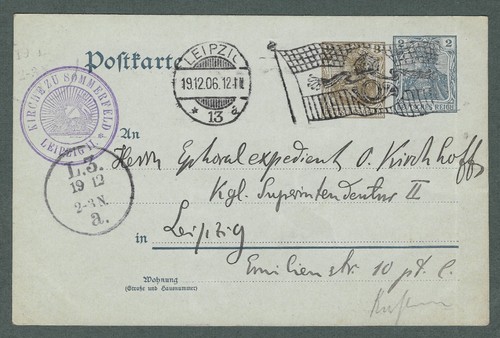 Postkarte
LEIPZIG
19.12.06.12-1N
* 13 d
3
2
2
DEUTSCHES REICH
KIRCHE ZU SOMMERFELD
LEIPZIG II.
L.3.
19 12
2-3 N.
a.
An
Herrn Ephoralexpedient O. Kirchhoff
Kgl. Superintendentur II
in Leipzig
Emilienstr. 10 pt. l.
Wohnung
(Straße und Hausnummer)